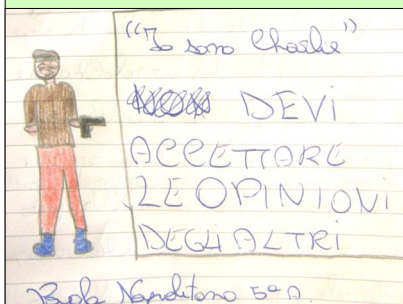 "Io sono Charlie"
DEVI
ACCETTARE
LE OPINIONI
DEGLI ALTRI
Napolitano 5ª A